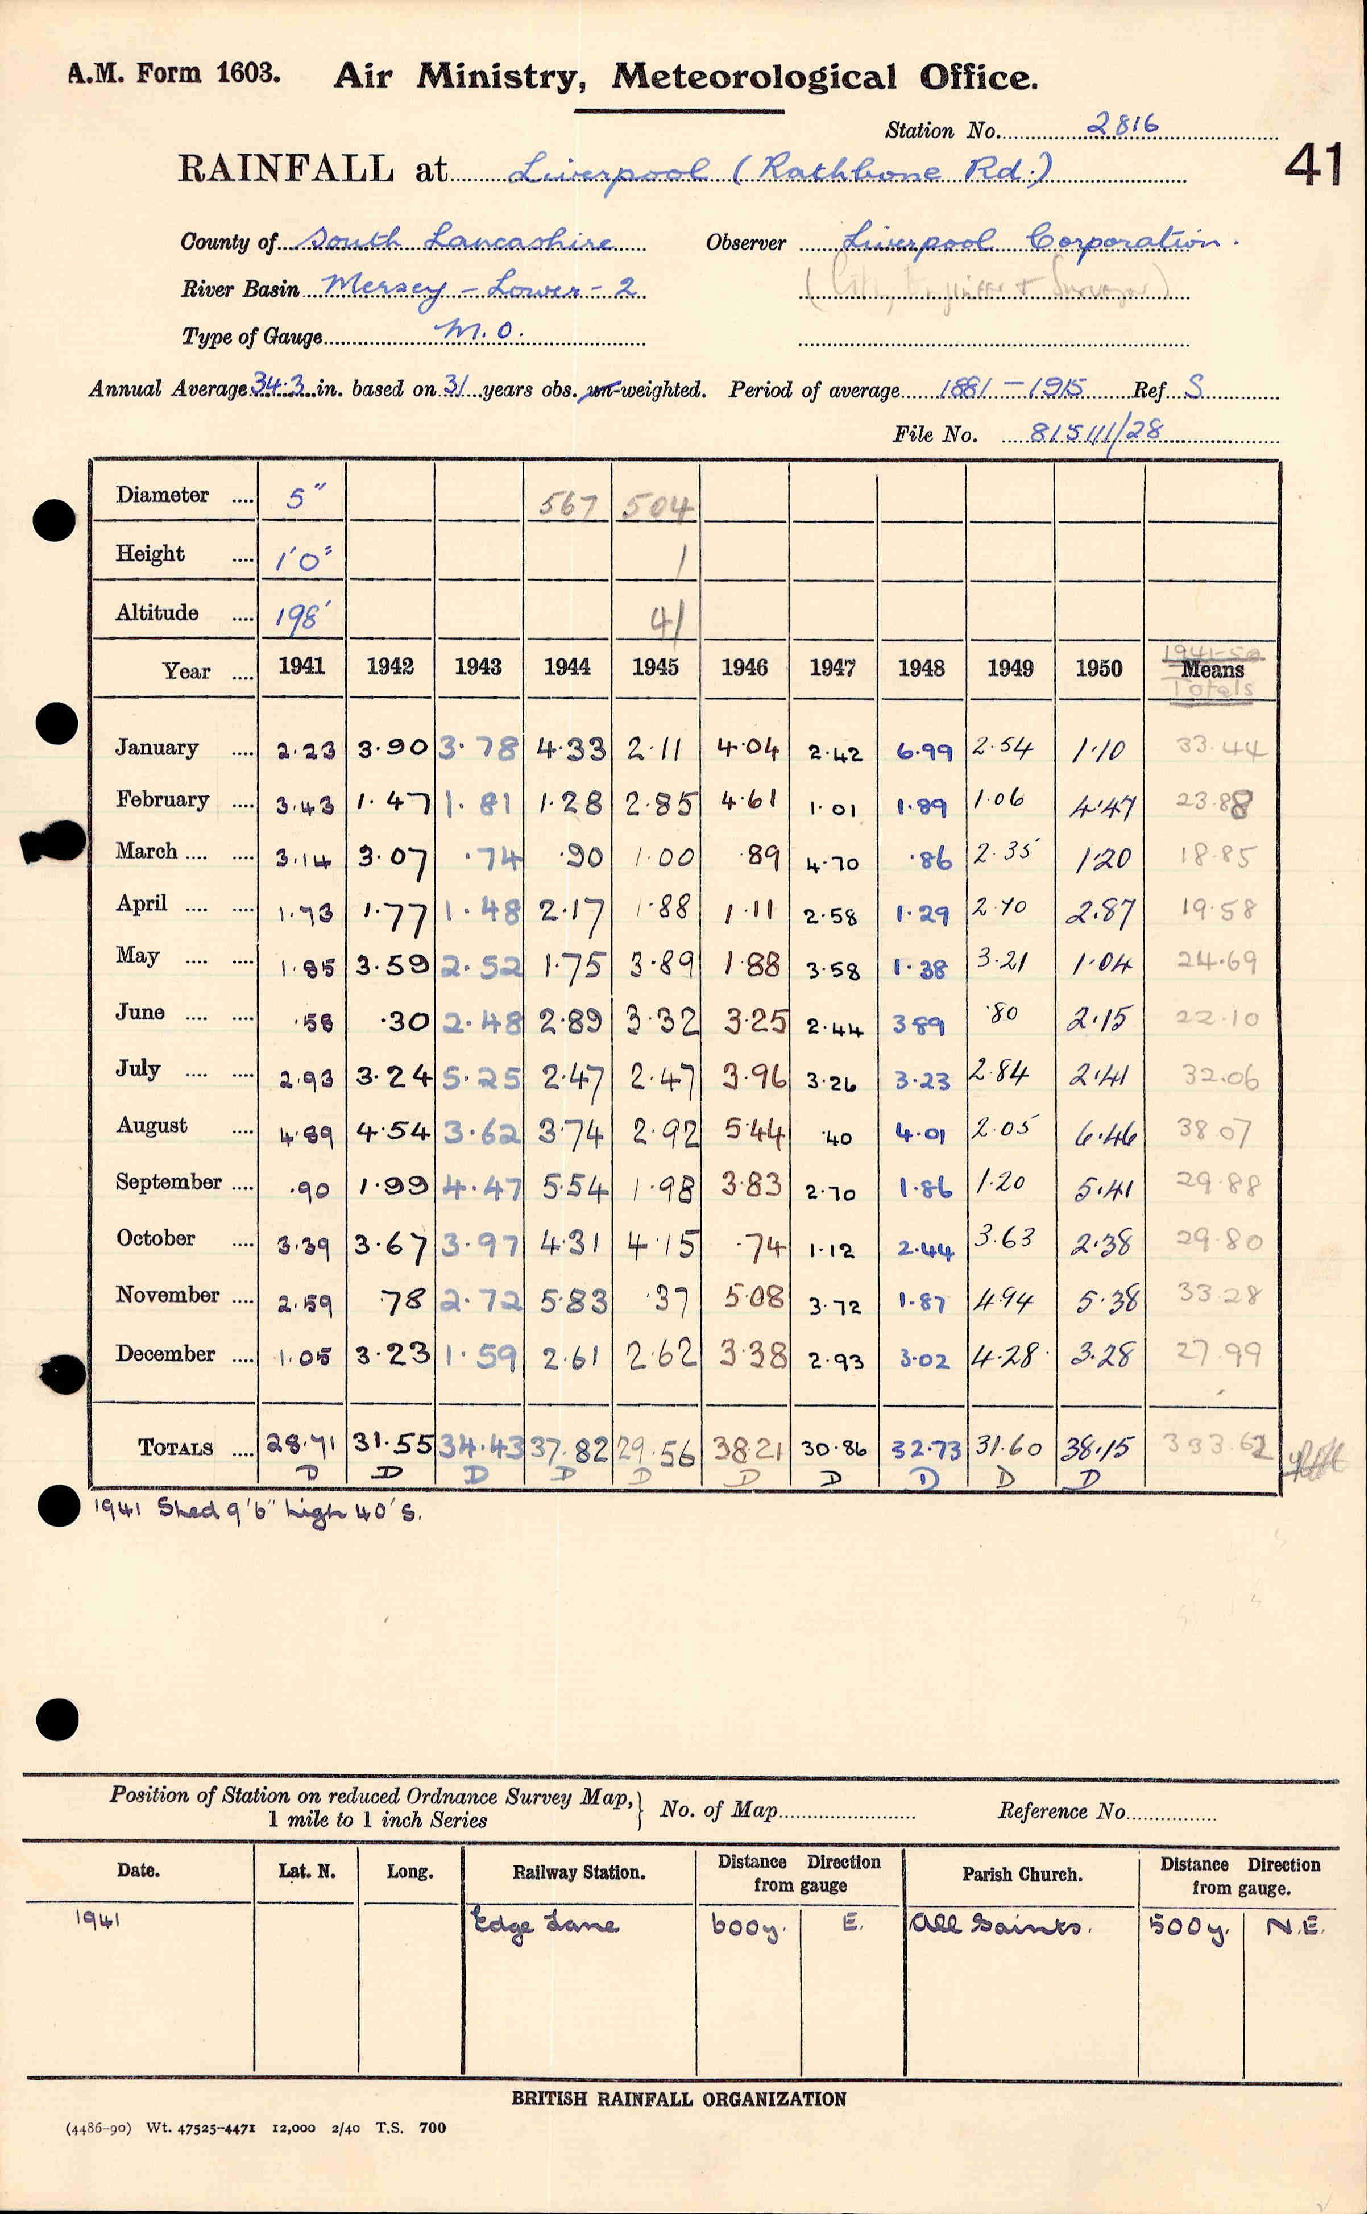 A.M. Form 1603. Air Ministry, Meteorological Office.
Station No. 2816
41
RAINFALL at Liverpool (Rathbone Rd.)
County of South Lancashire Observer Liverpool Corporation.
River Basin Mersey - Lower - 2 (City Engineer & Surveyor)
Type of Gauge M.O.
Annual Average 34.3 in. based on 31 years obs. un-weighted. Period of average 1881-1915 Ref S
File No. 815111/28
Diameter .... 5" 567 504
Height .... 1'0" 1
Altitude .... 198' 41
Year .... 1941 1942 1943 1944 1945 1946 1947 1948 1949 1950 1941-50 Means Totals
January .... 2.23 3.90 3.78 4.33 2.11 4.04 2.42 6.99 2.54 1.10 33.44
February .... 3.43 1.47 1.81 1.28 2.85 4.61 1.01 1.89 1.06 4.47 23.88
March .... .... 3.14 3.07 .74 .90 1.00 .89 4.70 .86 2.35 1.20 18.85
April .... .... 1.73 1.77 1.48 2.17 1.88 1.11 2.58 1.29 2.70 2.87 19.58
May .... .... 1.85 3.59 2.52 1.75 3.89 1.88 3.58 1.38 3.21 1.04 24.69
June .... .... .58 .30 2.48 2.89 3.32 3.25 2.44 3.89 .80 2.15 22.10
July .... .... 2.93 3.24 5.25 2.47 2.47 3.96 3.26 3.23 2.84 2.41 32.06
August .... 4.89 4.54 3.62 3.74 2.92 5.44 .40 4.01 2.05 6.46 38.07
September .... .90 1.99 4.47 5.54 1.98 3.83 2.70 1.86 1.20 5.41 29.88
October .... 3.39 3.67 3.97 4.31 4.15 .74 1.12 2.44 3.63 2.38 29.80
November .... 2.59 .78 2.72 5.83 .37 5.08 3.72 1.87 4.94 5.38 33.28
December .... 1.05 3.23 1.59 2.61 2.62 3.38 2.93 3.02 4.28 3.28 27.99
TOTALS .... 28.71 31.55 34.43 37.82 29.56 38.21 30.86 32.73 31.60 38.15 333.62
D D D D D D D D D D
1941 Shed 9'6" high 40' S.
Position of Station on reduced Ordnance Survey Map, No. of Map Reference No.
1 mile to 1 inch Series
Date. Lat. N. Long. Railway Station. Distance Direction from gauge Parish Church. Distance Direction from gauge.
1941 Edge Lane 600y. E. All Saints. 500y. N.E.
BRITISH RAINFALL ORGANIZATION
(4486-90) Wt. 47525-4471 12,000 2/40 T.S. 700